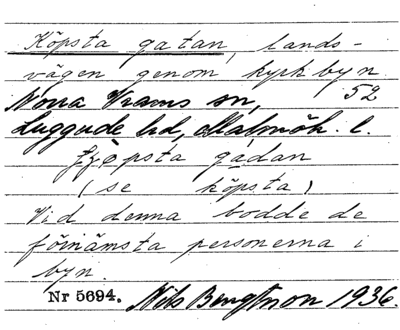 Köpsta gatan, lands-
vägen genom kyrkbyn
Norra Vrams sn, 52
Luggude hd, Malmöh. l.
çöpsta gadan
(se köpsta)
Vid denna bodde de
förnämsta personerna i
byn.
Nr 5694. Nils Bengtsson 1936.